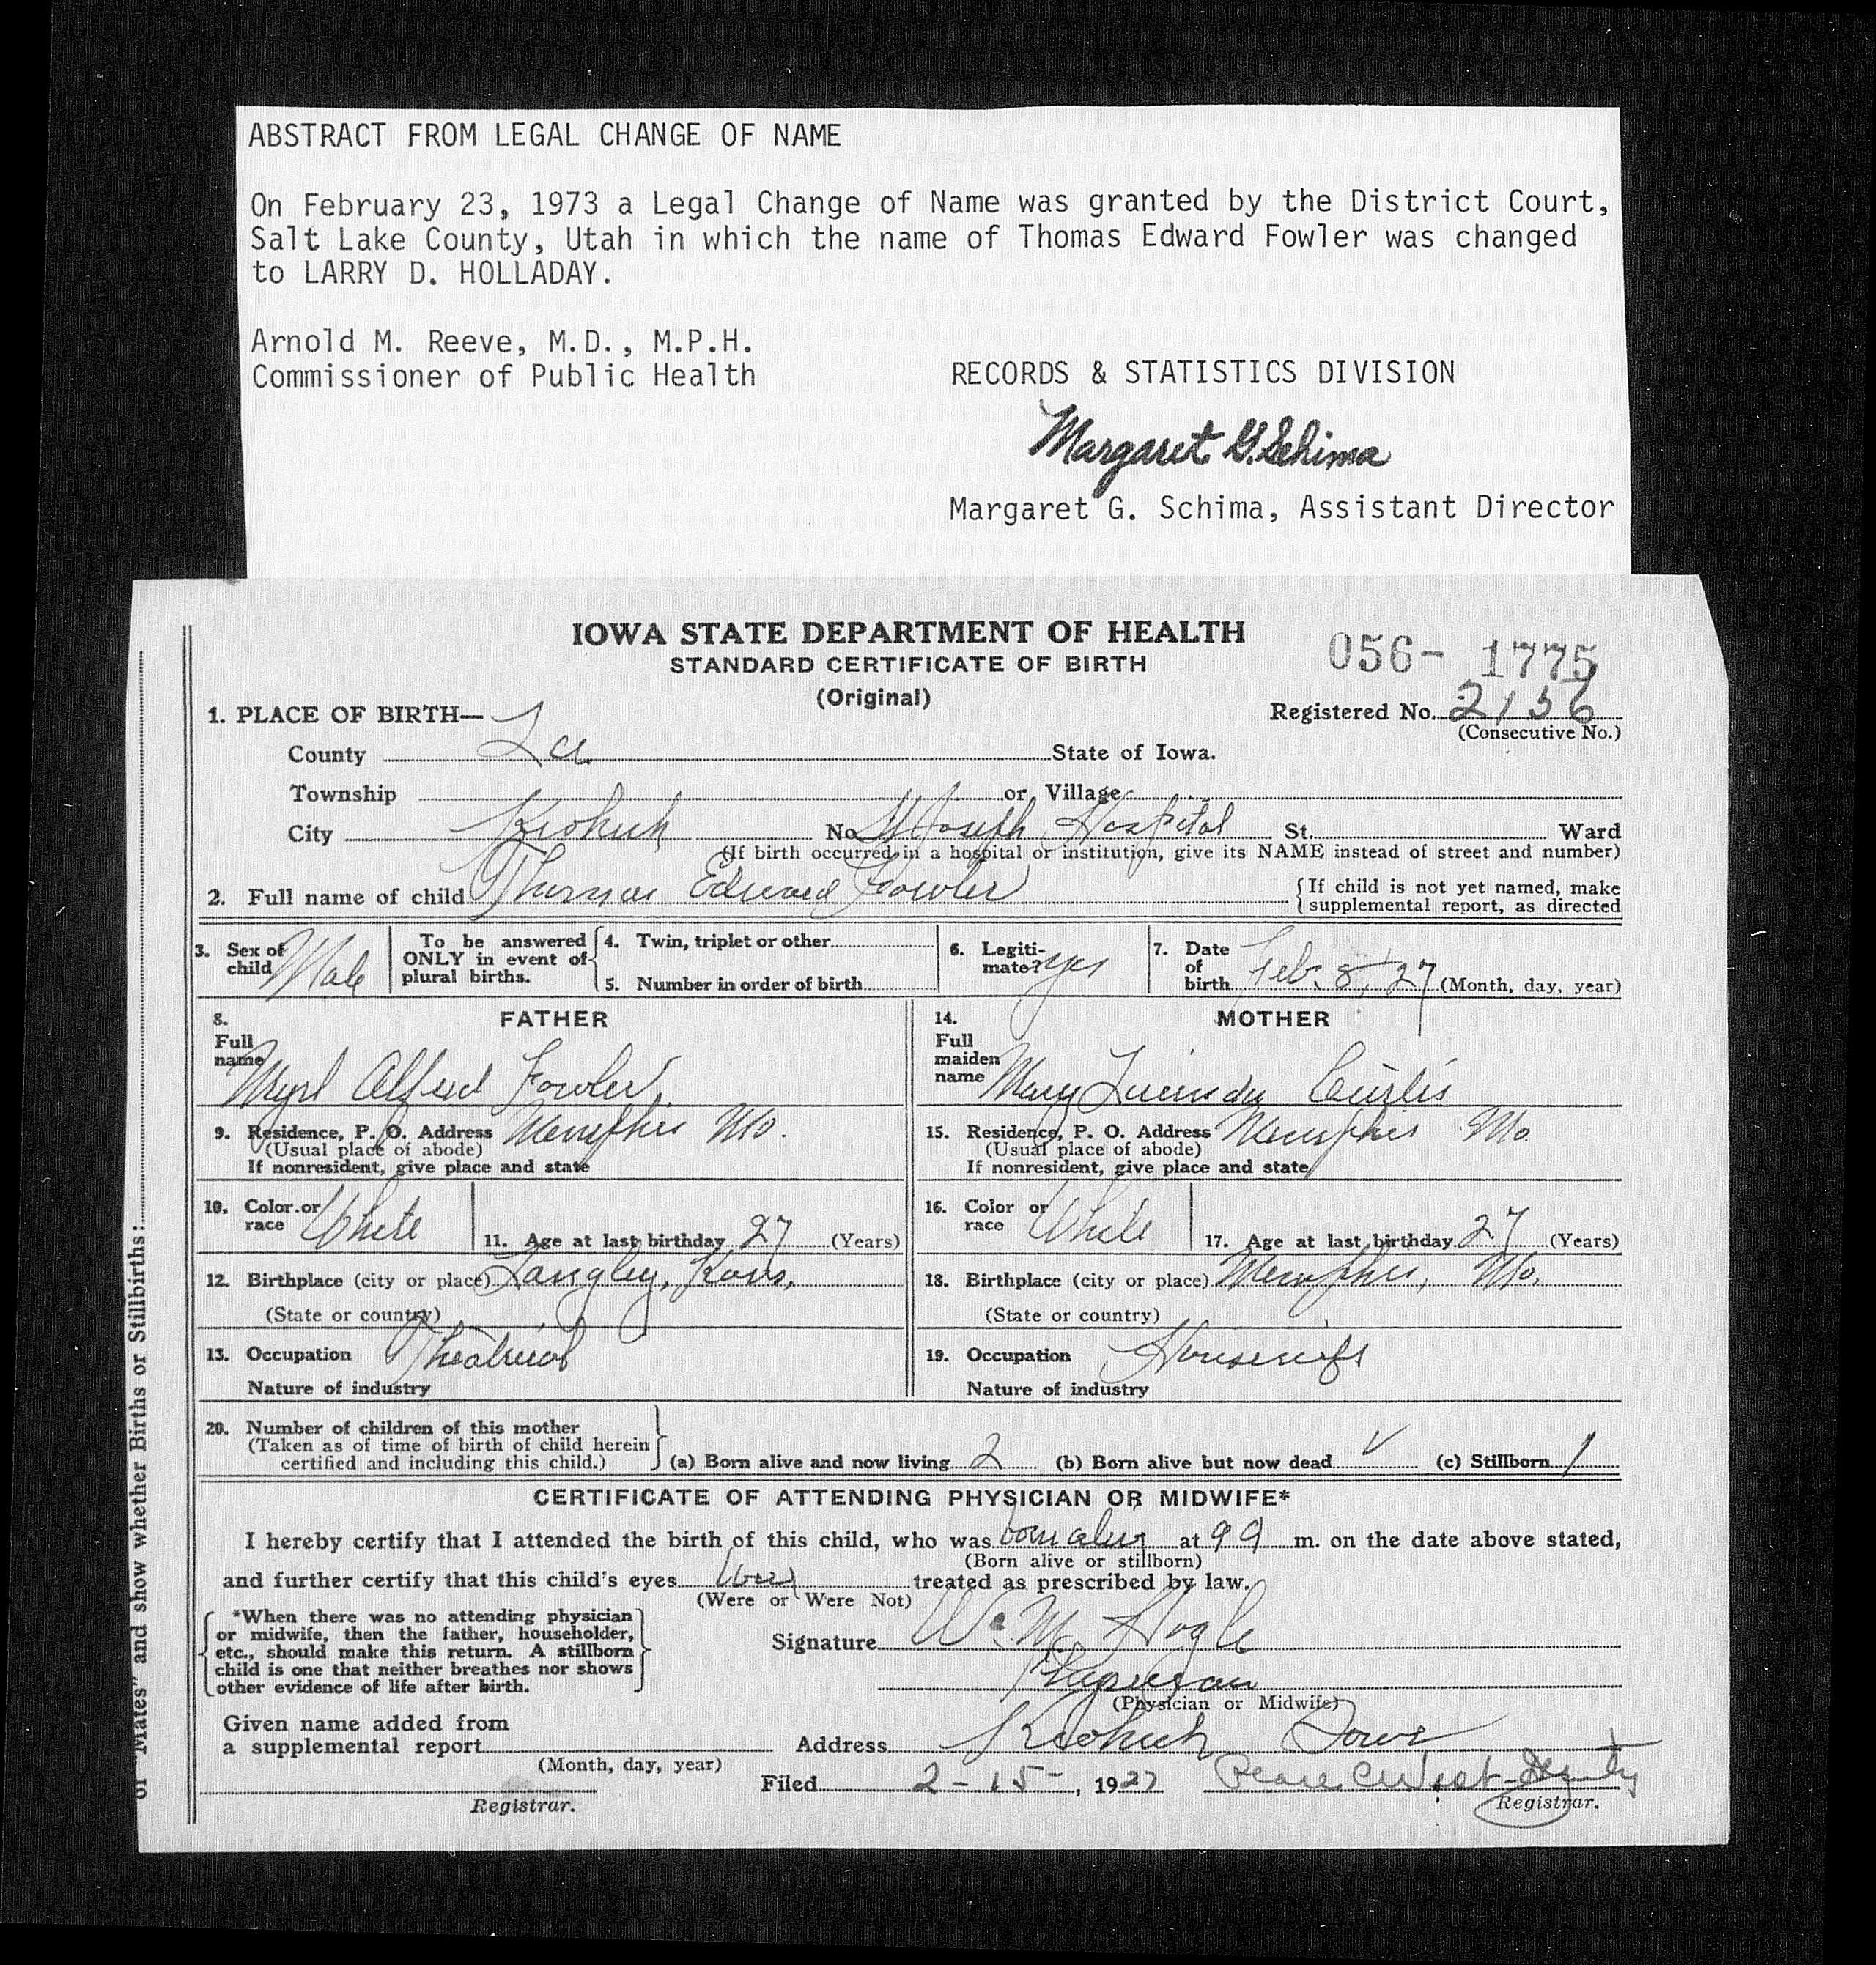 ABSTRACT FROM LEGAL CHANGE OF NAME
On February 23, 1973 a Legal Change of Name was granted by the District Court,
Salt Lake County, Utah in which the name of Thomas Edward Fowler was changed
to LARRY D. HOLLADAY.
Arnold M. Reeve, M.D., M.P.H.
Commissioner of Public Health
RECORDS & STATISTICS DIVISION
Margaret G. Schima
Margaret G. Schima, Assistant Director
IOWA STATE DEPARTMENT OF HEALTH
STANDARD CERTIFICATE OF BIRTH
(Original)
056- 1775
Registered No. 2156
(Consecutive No.)
1. PLACE OF BIRTH—
County Lee State of Iowa.
Township or Village
City Keokuk No. St Joseph Hospital St. Ward
(If birth occurred in a hospital or institution, give its NAME instead of street and number)
2. Full name of child Thomas Edward Fowler
{If child is not yet named, make
supplemental report, as directed
3. Sex of child Male
To be answered ONLY in event of plural births.
4. Twin, triplet or other
5. Number in order of birth
6. Legiti-mate? yes
7. Date of birth Feb. 8, 27 (Month, day, year)
FATHER
8. Full name Myrl Alfred Fowler
9. Residence, P. O. Address Memphis Mo.
(Usual place of abode)
If nonresident, give place and state
10. Color or race White
11. Age at last birthday 27 (Years)
12. Birthplace (city or place) Langley, Kans.
(State or country)
13. Occupation Theatrical
Nature of industry
MOTHER
14. Full maiden name Mary Lucinda Curtis
15. Residence, P. O. Address Memphis Mo.
(Usual place of abode)
If nonresident, give place and state
16. Color or race White
17. Age at last birthday 27 (Years)
18. Birthplace (city or place) Memphis, Mo.
(State or country)
19. Occupation Housewife
Nature of industry
20. Number of children of this mother
(Taken as of time of birth of child herein
certified and including this child.)
(a) Born alive and now living 2 (b) Born alive but now dead ✓ (c) Stillborn 1
CERTIFICATE OF ATTENDING PHYSICIAN OR MIDWIFE*
I hereby certify that I attended the birth of this child, who was born alive at 9 a m. on the date above stated,
(Born alive or stillborn)
and further certify that this child's eyes were treated as prescribed by law.
(Were or Were Not)
*When there was no attending physician
or midwife, then the father, householder,
etc., should make this return. A stillborn
child is one that neither breathes nor shows
other evidence of life after birth.
Signature Wm Hogle
Physician
(Physician or Midwife)
Given name added from
a supplemental report
(Month, day, year)
Registrar.
Address Keokuk Iowa
Filed 2-15-, 1927 West - Deputy
Registrar.
or "Mates" and show whether Births or Stillbirths: